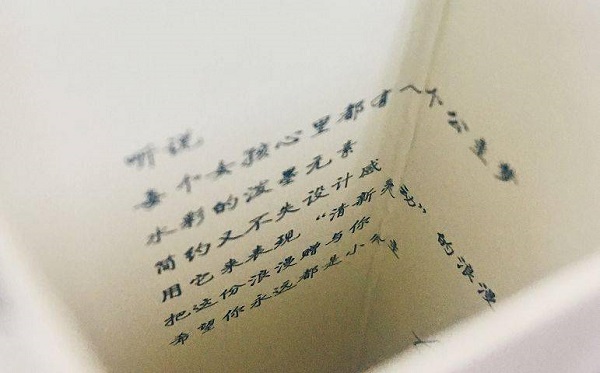 听说
每个女孩心里都有一个公主梦
水彩的泼墨元素
简约又不失设计感
用它来表现“清新 ”的浪漫
把这份浪漫赠与你
希望你永远都是小